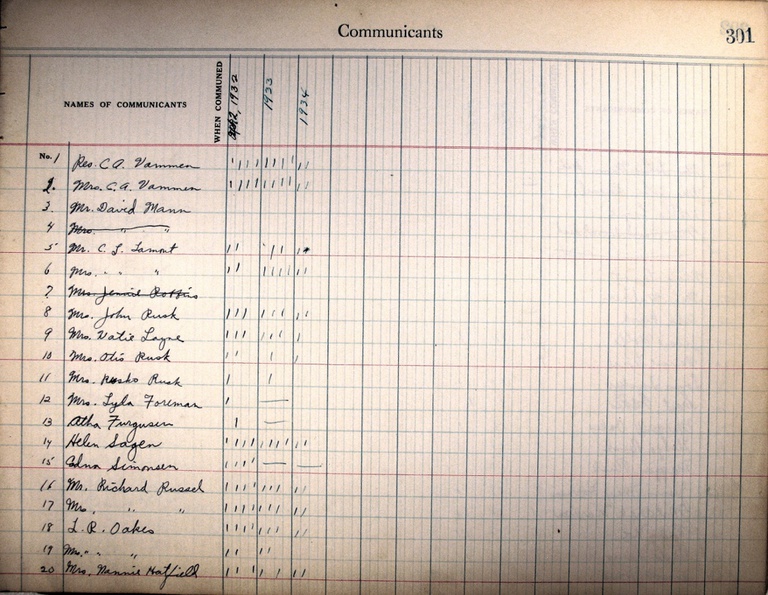 Communicants
301
NAMES OF COMMUNICANTS
WHEN COMMUNED
1932
1933
1934
No. 1 Rev. C. A. Vammen
2. Mrs. C. A. Vammen
3. Mr. David Mann
4 Mrs. " "
5 Mr. C. L. Lamont
6 Mrs. " " "
7 Mrs. Jennie Robbins
8 Mrs. John Rusk
9 Mrs. Layne
10 Mrs. Otis Rusk
11 Mrs. Rusk
12 Mrs. Lyla Foreman
13 Atha Furguson
14 Helen Sagen
15 Edna Simonsen
16 Mr. Richard Russel
17 Mrs. " "
18 L. R. Oakes
19 Mrs. " " "
20 Mrs. Nannie Hatfield